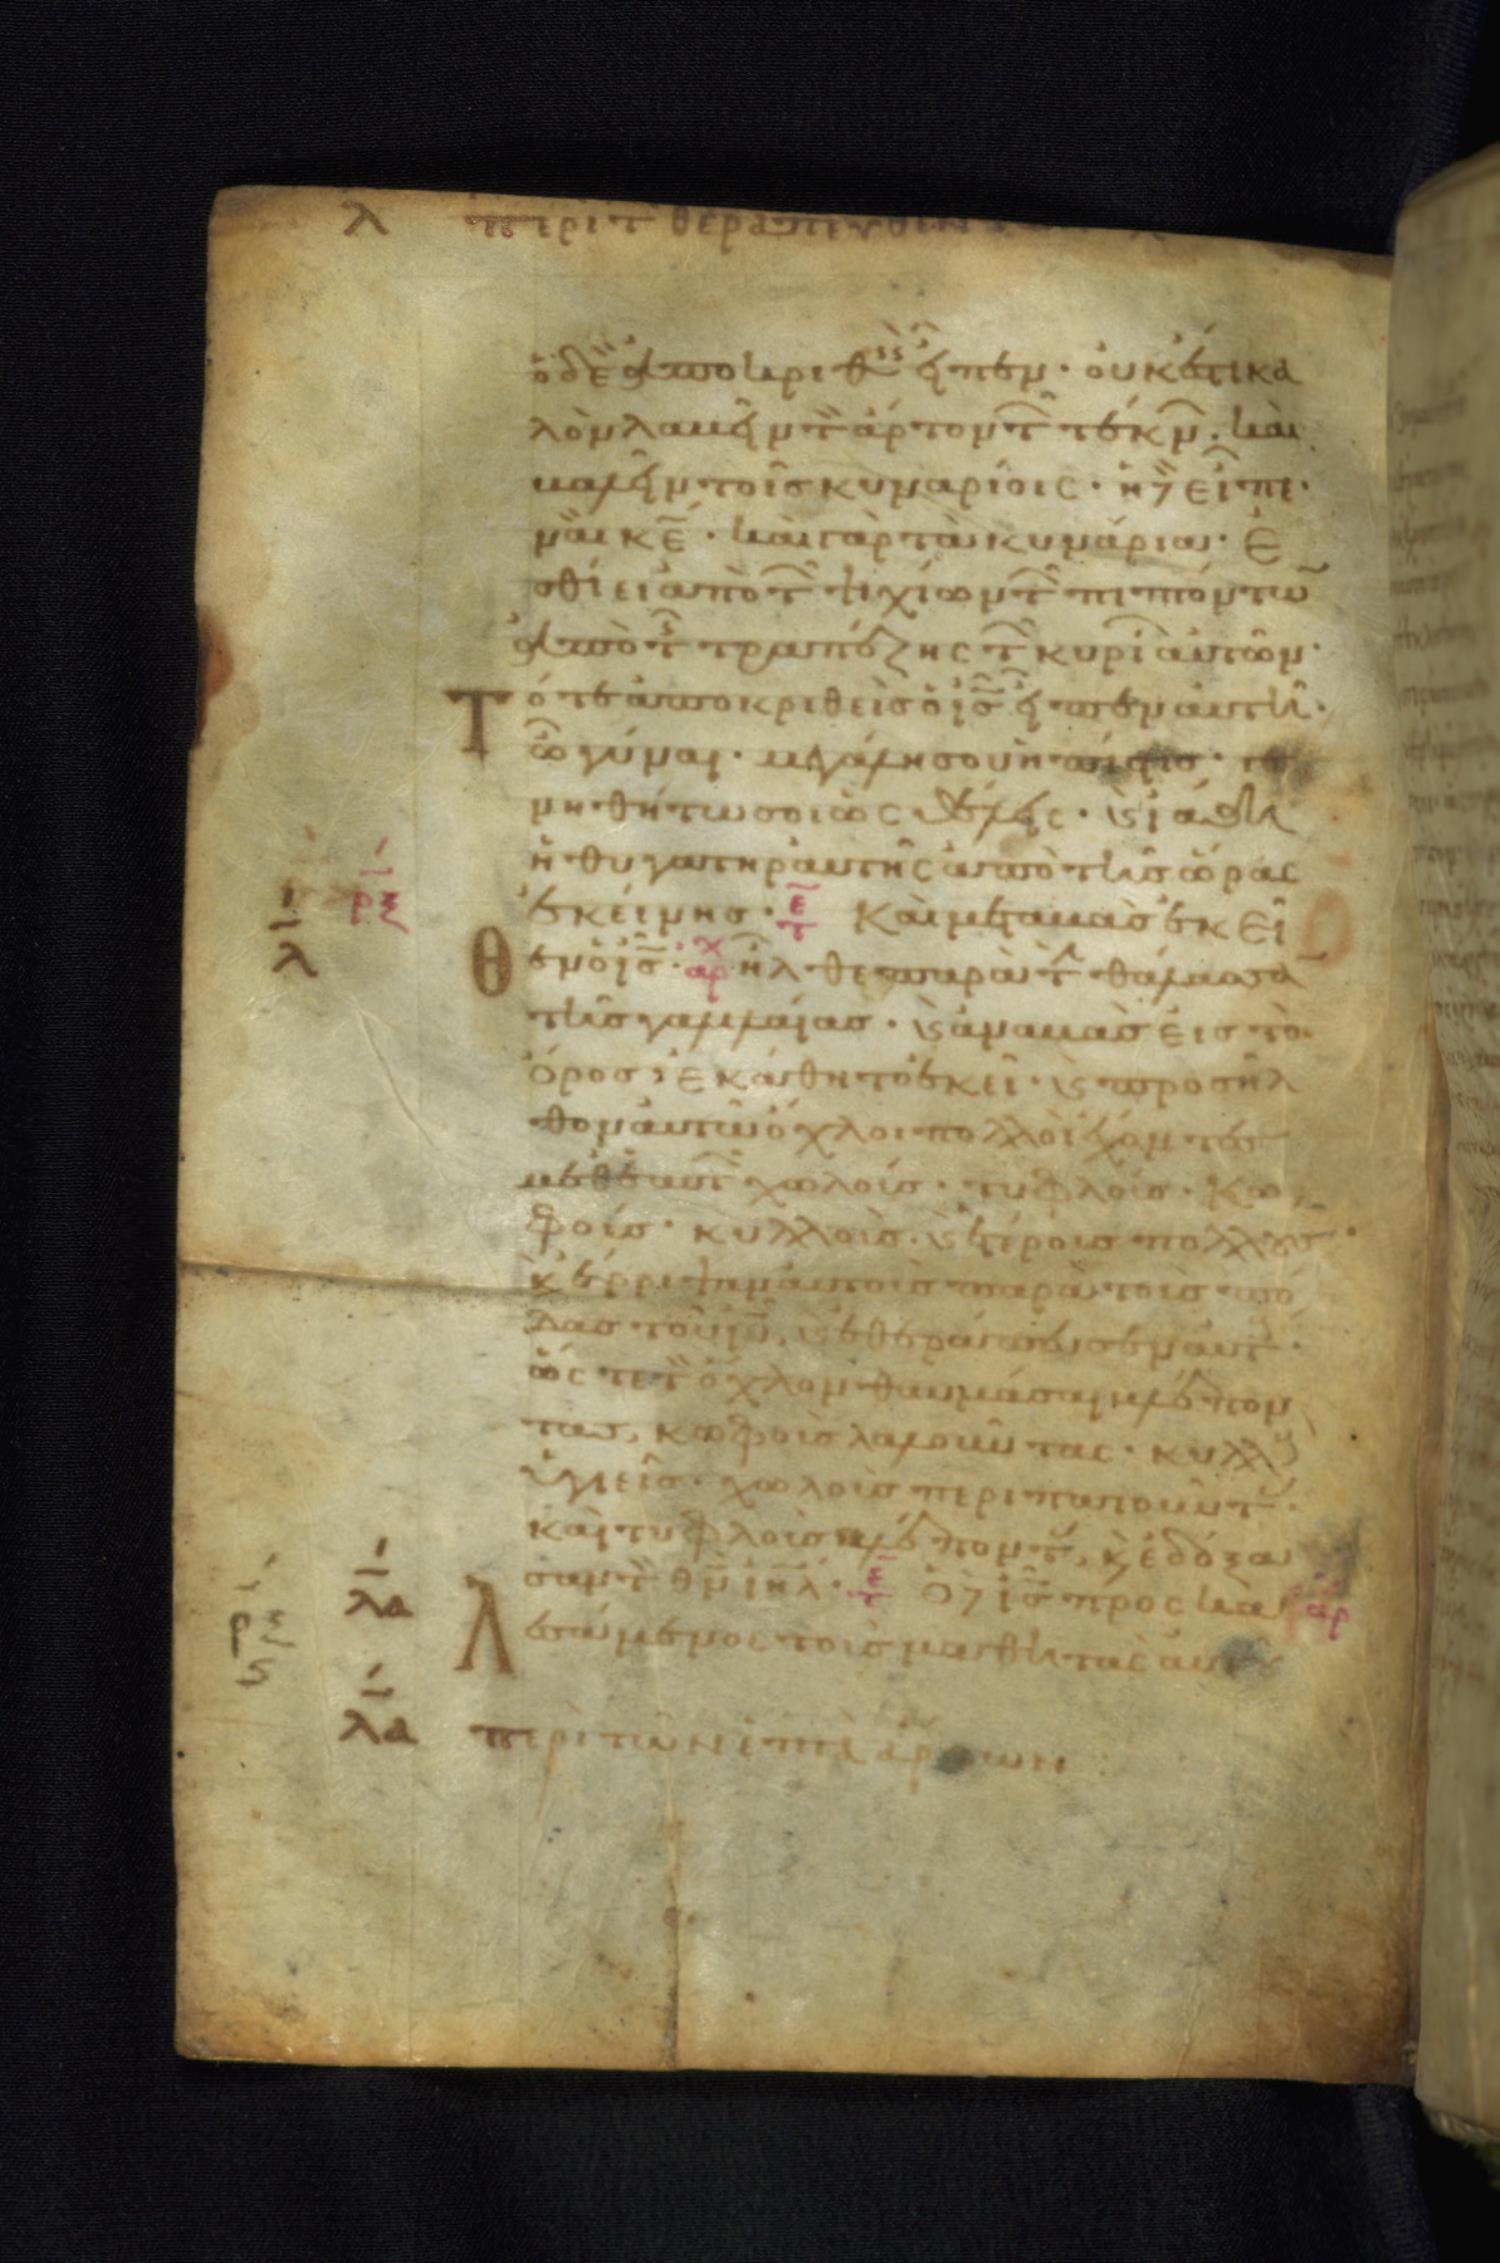 λ περι τ θεραπευθεντ
ὁ δὲ ἀποκριθ εἶπεν · οὐκ ἔστι κα
λὸν λαβεῖν τ ἄρτον τ τέκν · καὶ
βαλεῖν τοῖς κυναρίοις · ἡ δ εἶπε ·
ναὶ κε · καὶ γὰρ τὰ κυνάρια · ἐ
σθίει ἀπὸ τ ψιχίων τ πιπτόντω
ἀπὸ τ τραπέζης τ κυρί αὐτῶν ·
Τότε ἀποκριθεὶς ὁ ις εἶπεν αὐτῆ ·
ὦ γύναι · μεγάλη σου ἡ πίστις · γε
νηθήτω σοι ὡς θέλεις · κ ἰάθη
ἡ θυγάτηρ αὐτῆς ἀπὸ τῆς ὥρας
λ ρξ ἐκείνης · τε Καὶ μεταβὰς ἐκεῖ
θεν ὁ ις · αρχ ἦλθε παρὰ τ θάλασσα
τῆς γαλιλαίας · κ ἀναβὰς εἰς τὸ
ὄρος ἐκάθητο ἐκεῖ · κ προσῆλ
θον αὐτῶ ὄχλοι πολλοὶ ἔχοντες
μεθ ἑαυτ χωλούς · τυφλούς · κω
φούς · κυλλοὺς · κ ἑτέρους πολλούς ·
κ ἔρριψαν αὐτοὺς παρὰ τοὺς πό
δας τοῦ ιυ, κ ἐθεράπευσεν αὐτ ·
ὥστε τ ὄχλον θαυμάσαι βλέπον
τας, κωφοὺς λαλοῦντας · κυλλ
ὑγιεῖς · χωλοὺς περιπατοῦντ ·
καὶ τυφλοὺς βλέποντ, κ ἐδόξα
λα σαν τ θν ιηλ · τε Ὁ δ ις προσκα αρ
ρξς Λεσάμενος τοὺς μαθητὰς αὐ
λα περὶ τῶν ἑπτὰ ἄρτων